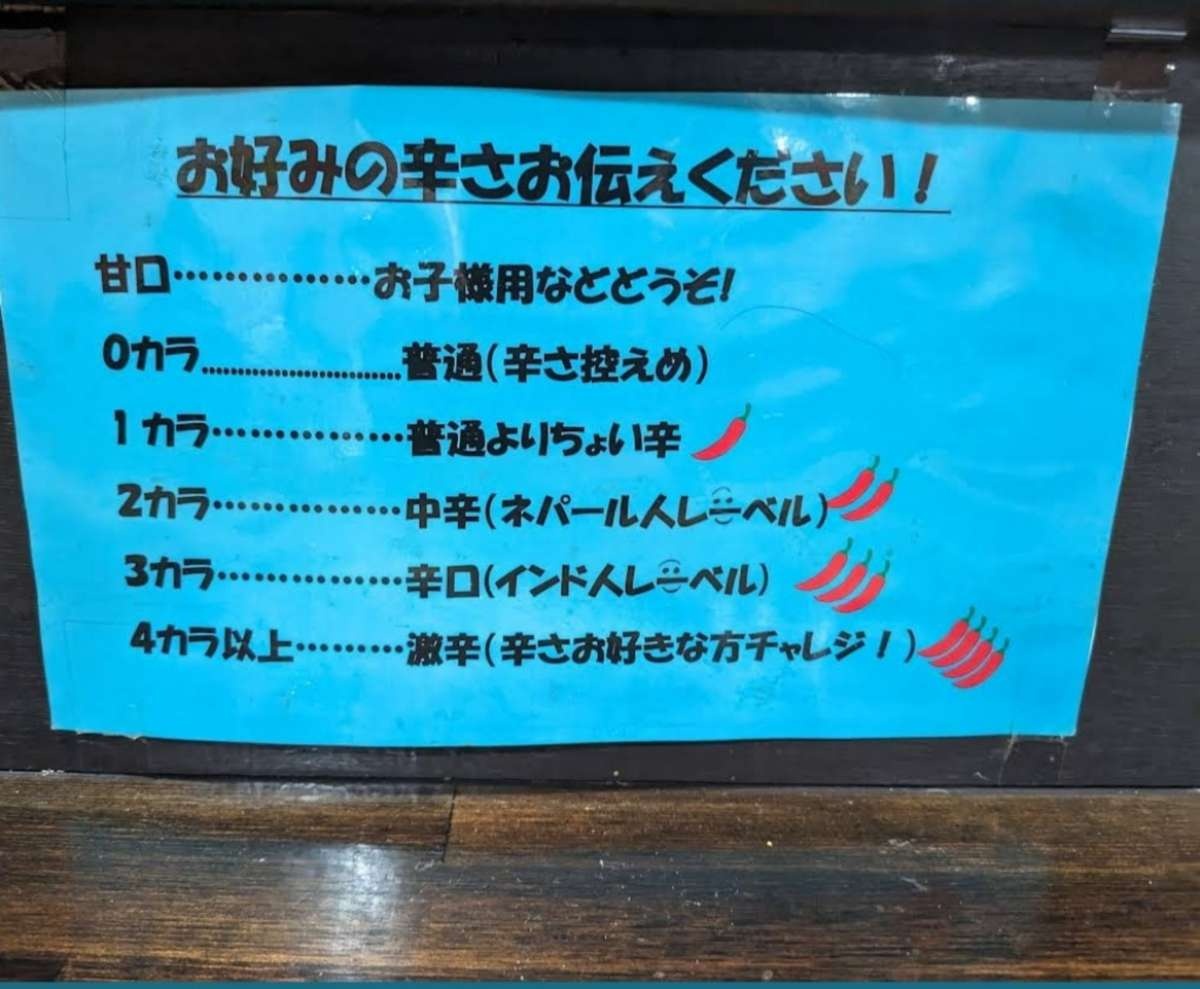 お好みの辛さお伝えください！
甘口……………お子様用などどうぞ!
0カラ............................普通(辛さ控えめ)
1カラ……………普通よりちょい辛
2カラ……………中辛(ネパール人レーベル)
3カラ……………辛口(インド人レーベル)
4カラ以上………激辛(辛さお好きな方チャレジ！)